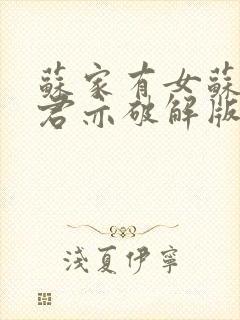 蘇家有女蘇
君亦破解版
淺夏伊寧